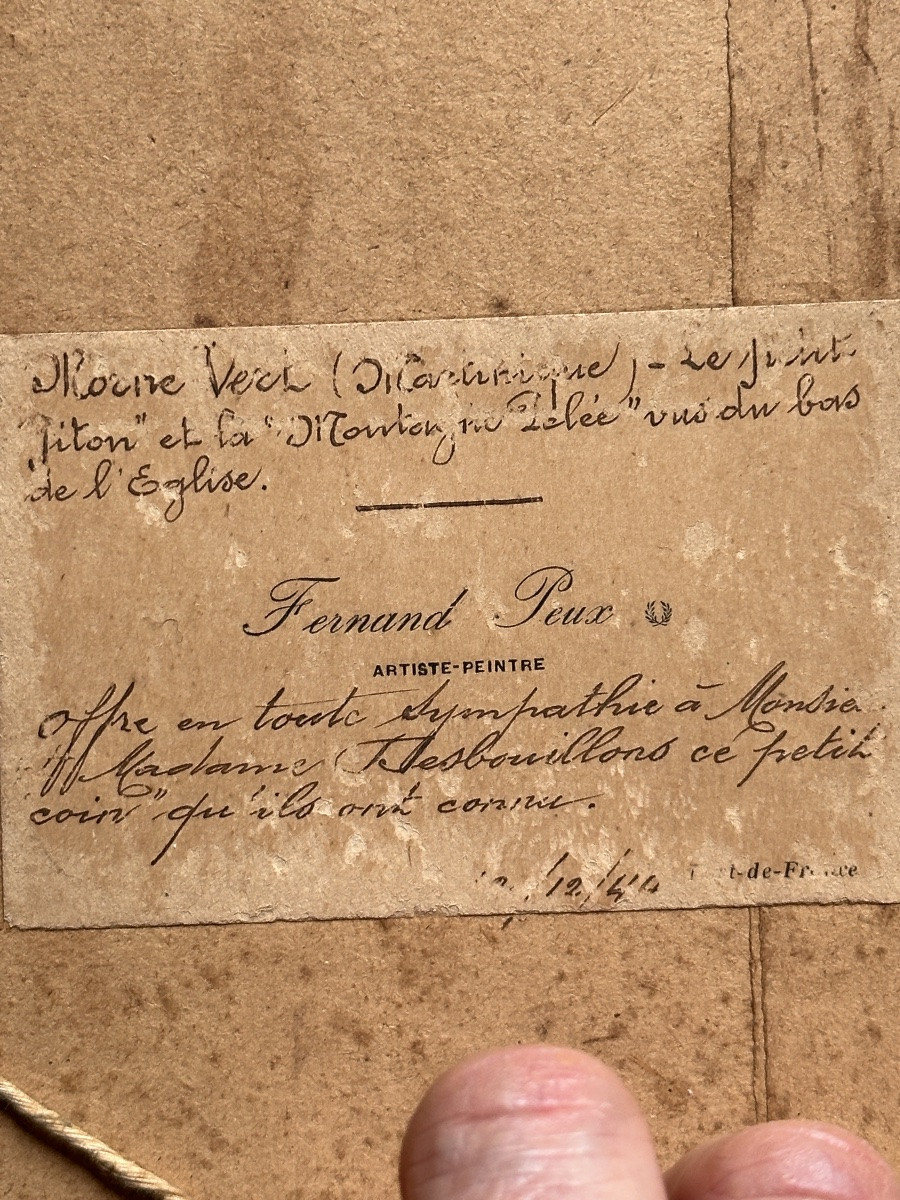 Morne Vert (Martinique) - Le petit
Piton" et la "Montagne Pelée" vus du bas
de l'Eglise.
Fernand Peux
ARTISTE-PEINTRE
offre en toute sympathie à
Madame Desbouillons ce petit
coin" qu'ils ont connu.
/12/44
Fort-de-France